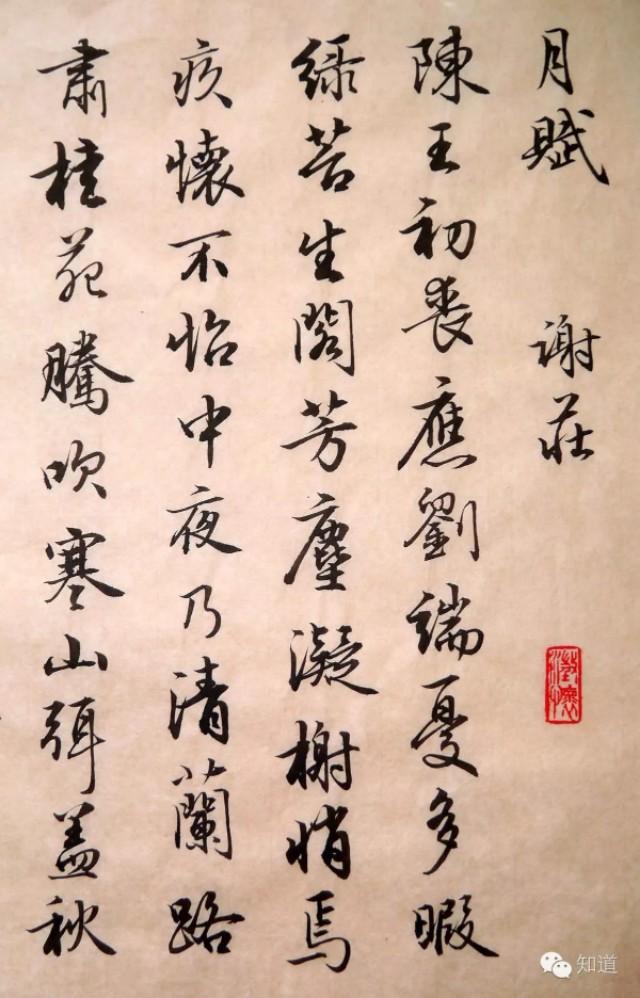 月賦 謝莊
陳王初喪應劉端憂多暇
綠苔生閣芳塵凝榭悄焉
疚懷不怡中夜乃清蘭路
肅桂苑騰吹寒山弭盖秋
澄懷
知道